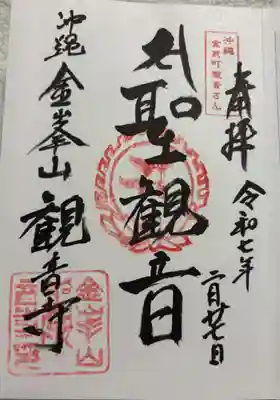 奉拝
令和七年
二月廿七日
沖縄
金武町観音さん
聖観音
沖縄 金峯山 観音寺